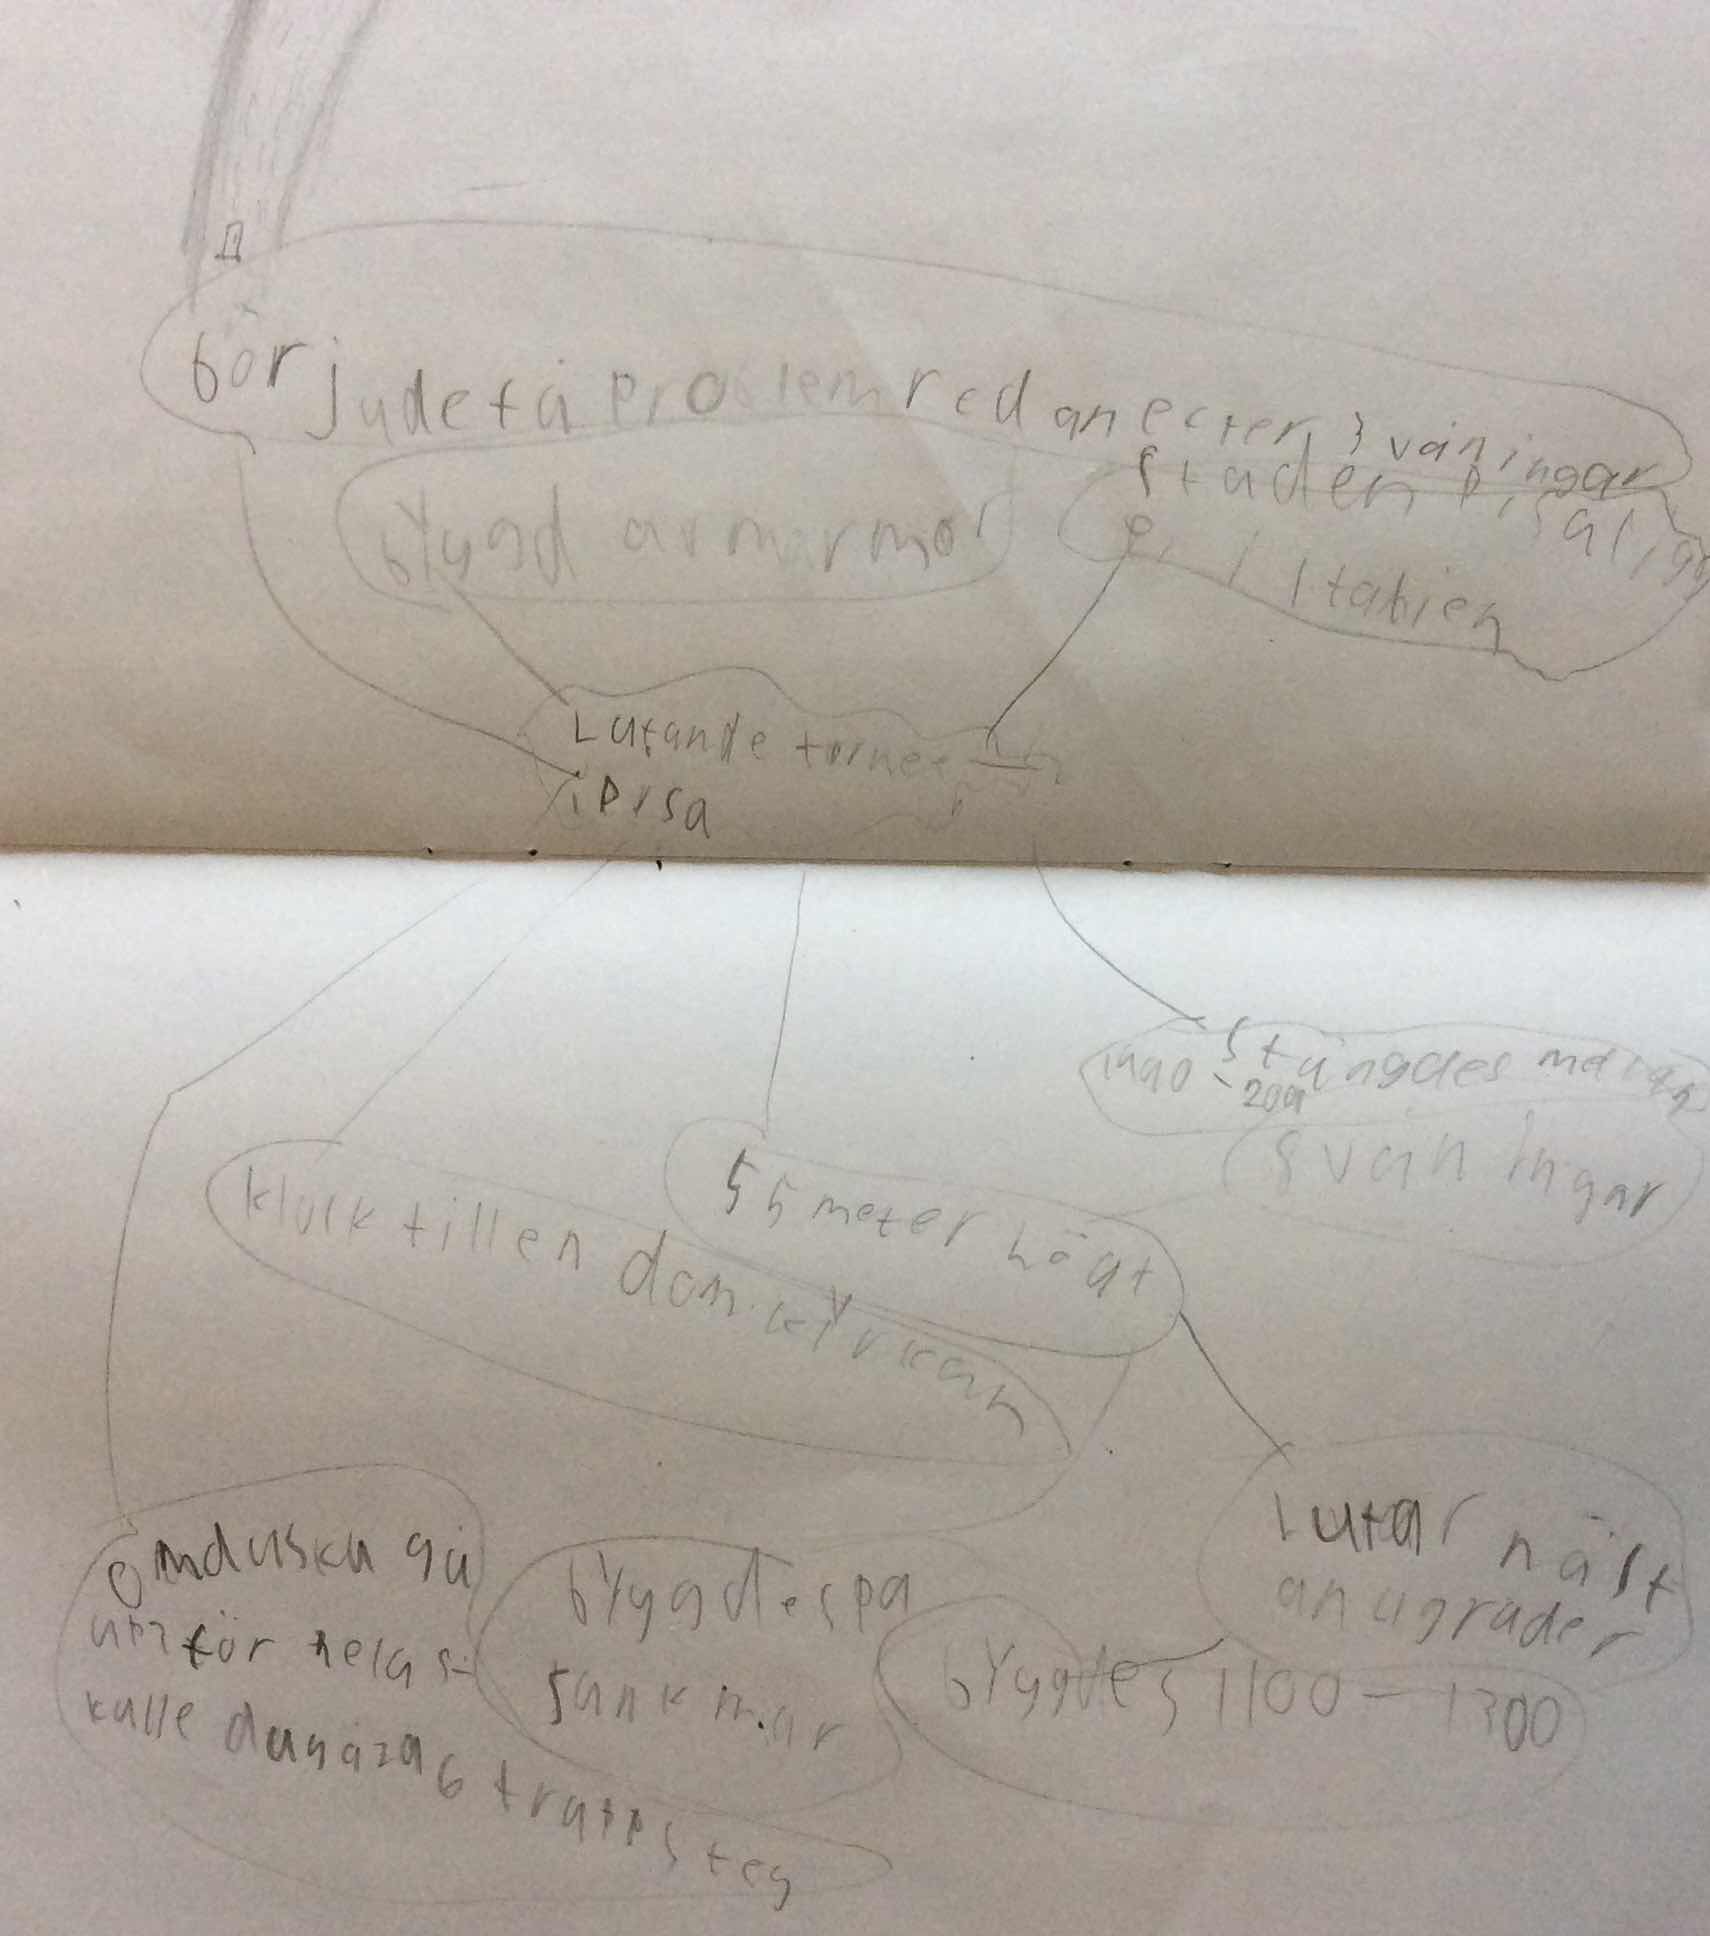 börjude få problem redan efter 3 våningar
byygd av marmor
staden Pisa ligg
er i Italien
Lutande tornet
i Pisa
1990 - 2001 stängdes
8 våningar
klock till en domkyrkan
55 meter högt
Lutar näst
an 4 grader
om du ska gå
upp för hela s
kulle du gå 296 trappsteg
byygdes på
sank mar
byygdes 1100 - 1300